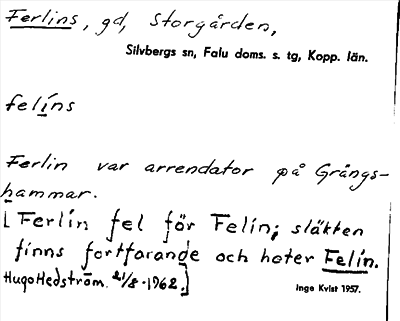 Ferlins, gd, Storgården,
Silvbergs sn, Falu doms. s. tg, Kopp. län.
felins
Ferlin var arrendator på Grängs-
hammar.
[Ferlin fel för Felin; släkten
finns fortfarande och heter Felin.
Hugo Hedström. 21/8-1962.]
Inga Kvist 1957.